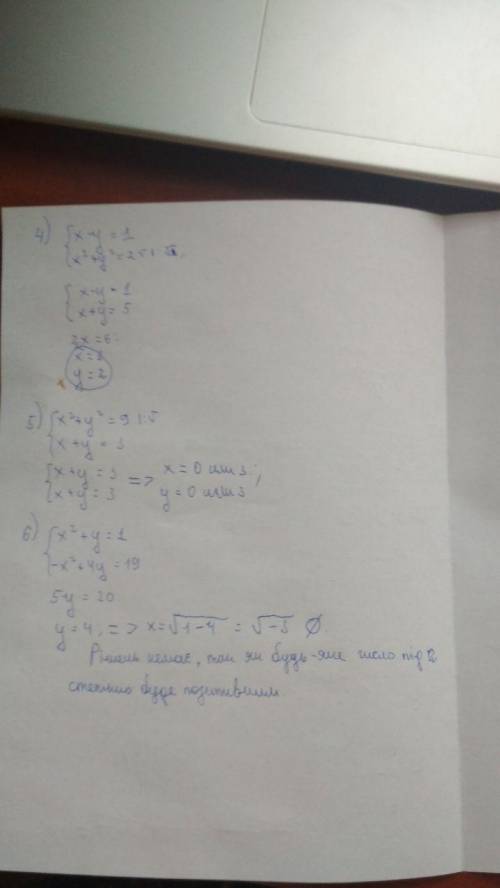 4) { x-y=1
x²+y²=25 | :
{ x-y=1
x+y=5
2x=6
x=3
y=2
5) { x²+y²=9 | :
x+y=3
{ x+y=3 => x=0 или 3;
x+y=3 y=0 или 3
6) { x²+y=1
-x²+4y=19
5y=20
y=4, => x=√1-4 = √-3 ∅.
Рішень немає, так як будь-яке число під 2
степенью буде позитивним